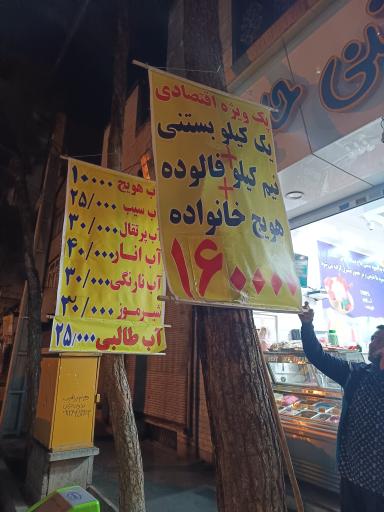 پک ویژه اقتصادی
یک کیلو بستنی
+
نیم کیلو فالوده
+
هویج خانواده
۱۶۰۰۰۰
آب هویج ۱۰۰۰۰
آب سیب ۲۵/۰۰۰
آب پرتقال ۳۰/۰۰۰
آب انار ۴۰/۰۰۰
آب نارنگی ۳۰/۰۰۰
شیرموز ۳۰/۰۰۰
آب طالبی ۲۵/۰۰۰